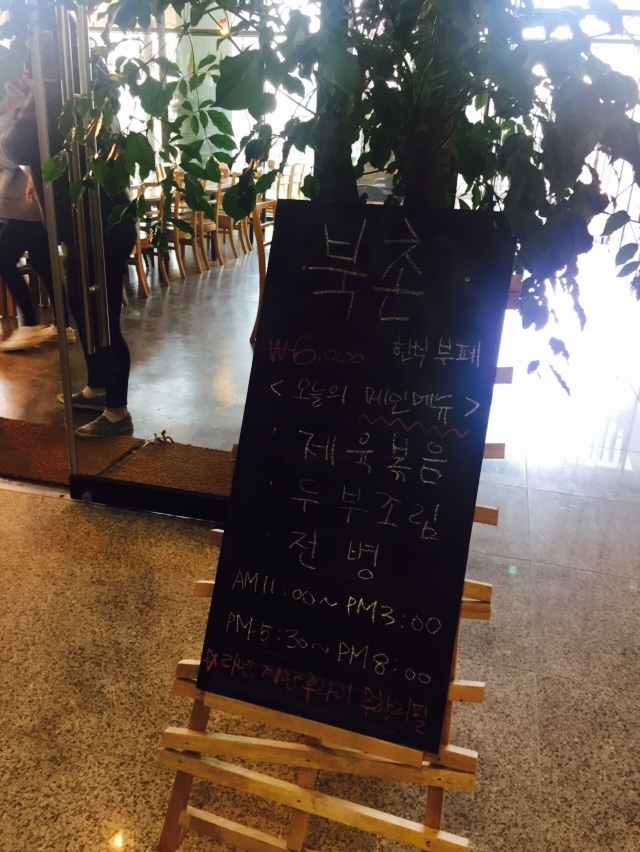 북촌
₩6.000 한식 부페
< 오늘의 메인메뉴 >
제육볶음
두부조림
전병
AM11:00~PM3:00
PM.5:30~PM8:00
☆라면 계란후라이 무한리필